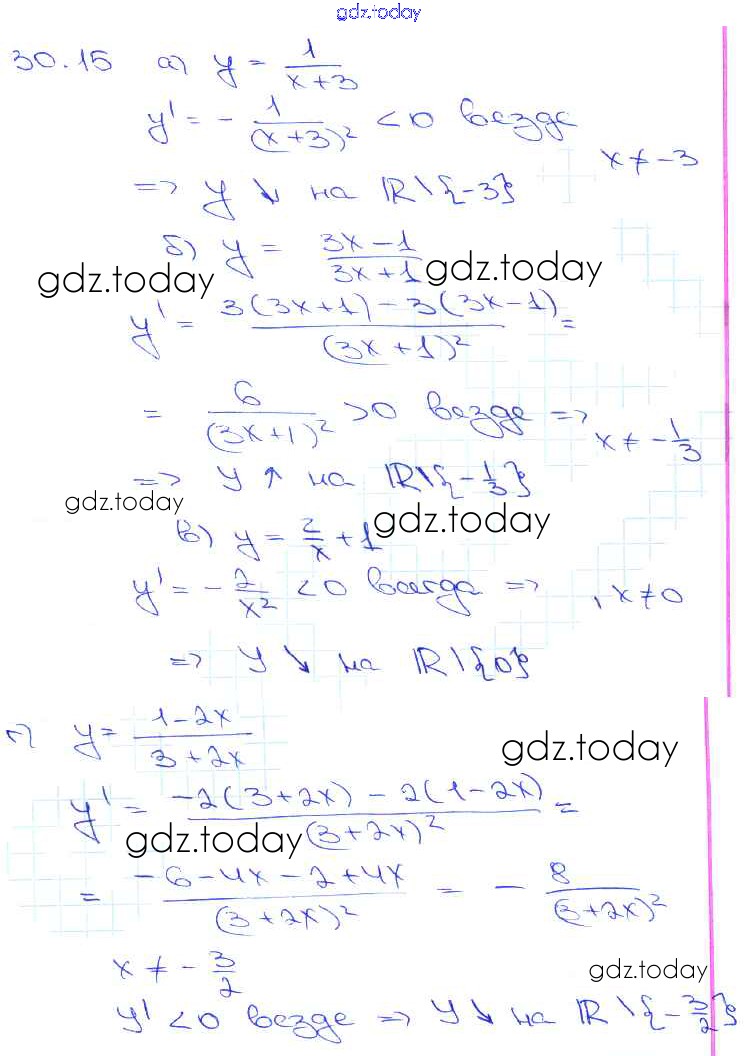 gdz.today
30.15 а) y = 1/(x+3)
y' = - 1/(x+3)² <0 везде
x ≠ -3
=> y ↘ на ℝ\{-3}
б) y = (3x-1)/(3x+1)
gdz.today gdz.today
y' = (3(3x+1)-3(3x-1))/(3x+1)² =
= 6/(3x+1)² >0 везде =>
x ≠ -1/3
=> y ↑ на ℝ\{-1/3}
gdz.today gdz.today
в) y = 2/x + 1
y' = - 2/x² <0 всегда => , x ≠ 0
=> y ↘ на ℝ\{0}
г) y = (1-2x)/(3+2x)
gdz.today
y' = (-2(3+2x) - 2(1-2x))/(3+2x)² =
gdz.today
= (-6-4x-2+4x)/(3+2x)² = - 8/(3+2x)²
x ≠ - 3/2
gdz.today
y' <0 везде => y ↘ на ℝ\{-3/2}